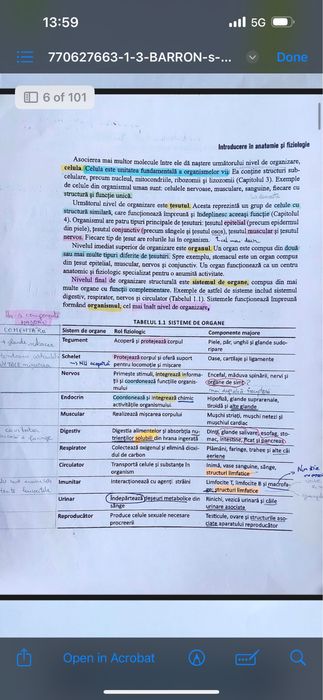 13:59
5G
770627663-1-3-BARRON-s-...
Done
6 of 101
Introducere în anatomie și fiziologie
Asocierea mai multor molecule între ele dă naștere următorului nivel de organizare,
celula. Celula este unitatea fundamentală a organismelor vii. Ea conține structuri sub-
celulare, precum nucleul, mitocondriile, ribozomii și lizozomii (Capitolul 3). Exemple
de celule din organismul uman sunt: celulele nervoase, musculare, sanguine, fiecare cu
structură și funcție unică.
Următorul nivel de organizare este țesutul. Acesta reprezintă un grup de celule cu
structură similară, care funcționează împreună și îndeplinesc aceeași funcție (Capitolul
4). Organismul are patru tipuri principale de țesuturi: țesutul epitelial (precum epidermul
din piele), țesutul conjunctiv (precum sângele și țesutul osos), țesutul muscular și țesutul
nervos. Fiecare tip de țesut are rolurile lui în organism.
Nivelul imediat superior de organizare este organul. Un organ este compus din două
sau mai multe tipuri diferite de țesuturi. Spre exemplu, stomacul este un organ compus
din țesut epitelial, muscular, nervos și conjunctiv. Un organ funcționează ca un centru
anatomic și fiziologic specializat pentru o anumită activitate.
Nivelul final de organizare structurală este sistemul de organe, compus din mai
multe organe cu funcții complementare. Exemple de astfel de sisteme includ sistemul
digestiv, respirator, nervos și circulator (Tabelul 1.1). Sistemele funcționează împreună
formând organismul, cel mai înalt nivel de organizare.
TABELUL 1.1 SISTEME DE ORGANE
Sistem de organe Rol fiziologic Componente majore
Tegument Acoperă și protejează corpul Piele, păr, unghii și glande sudo-
ripare
Schelet Protejează corpul și oferă suport Oase, cartilaje și ligamente
pentru locomoție și mișcare
Nervos Primește stimuli, integrează informa- Encefal, măduva spinării, nervi și
ții și coordonează funcțiile organis- organe de simț
mului
Endocrin Coordonează și integrează chimic Hipofiză, glande suprarenale,
activitățile organismului tiroidă și alte glande
Muscular Realizează mișcarea corpului Mușchi striați, mușchi netezi și
mușchiul cardiac
Digestiv Digestia alimentelor și absorbția nu- Dinți, glande salivare, esofag, sto-
trienților solubili din hrana ingerată mac, intestine, ficat și pancreas
Respirator Colectează oxigenul și elimină dioxi- Plămâni, faringe, trahee și alte căi
dul de carbon aeriene
Circulator Transportă celule și substanțe în Inimă, vase sanguine, sânge,
organism structuri limfatice
Imunitar Interacționează cu agenți străini Limfocite T, limfocite B și macrofa-
ge, structuri limfatice
Urinar Îndepărtează deșeuri metabolice din Rinichi, vezică urinară și căile
sânge urinare asociate
Reproducător Produce celule sexuale necesare Testicule, ovare și structurile aso-
procreerii ciate aparatului reproducător
Open in Acrobat